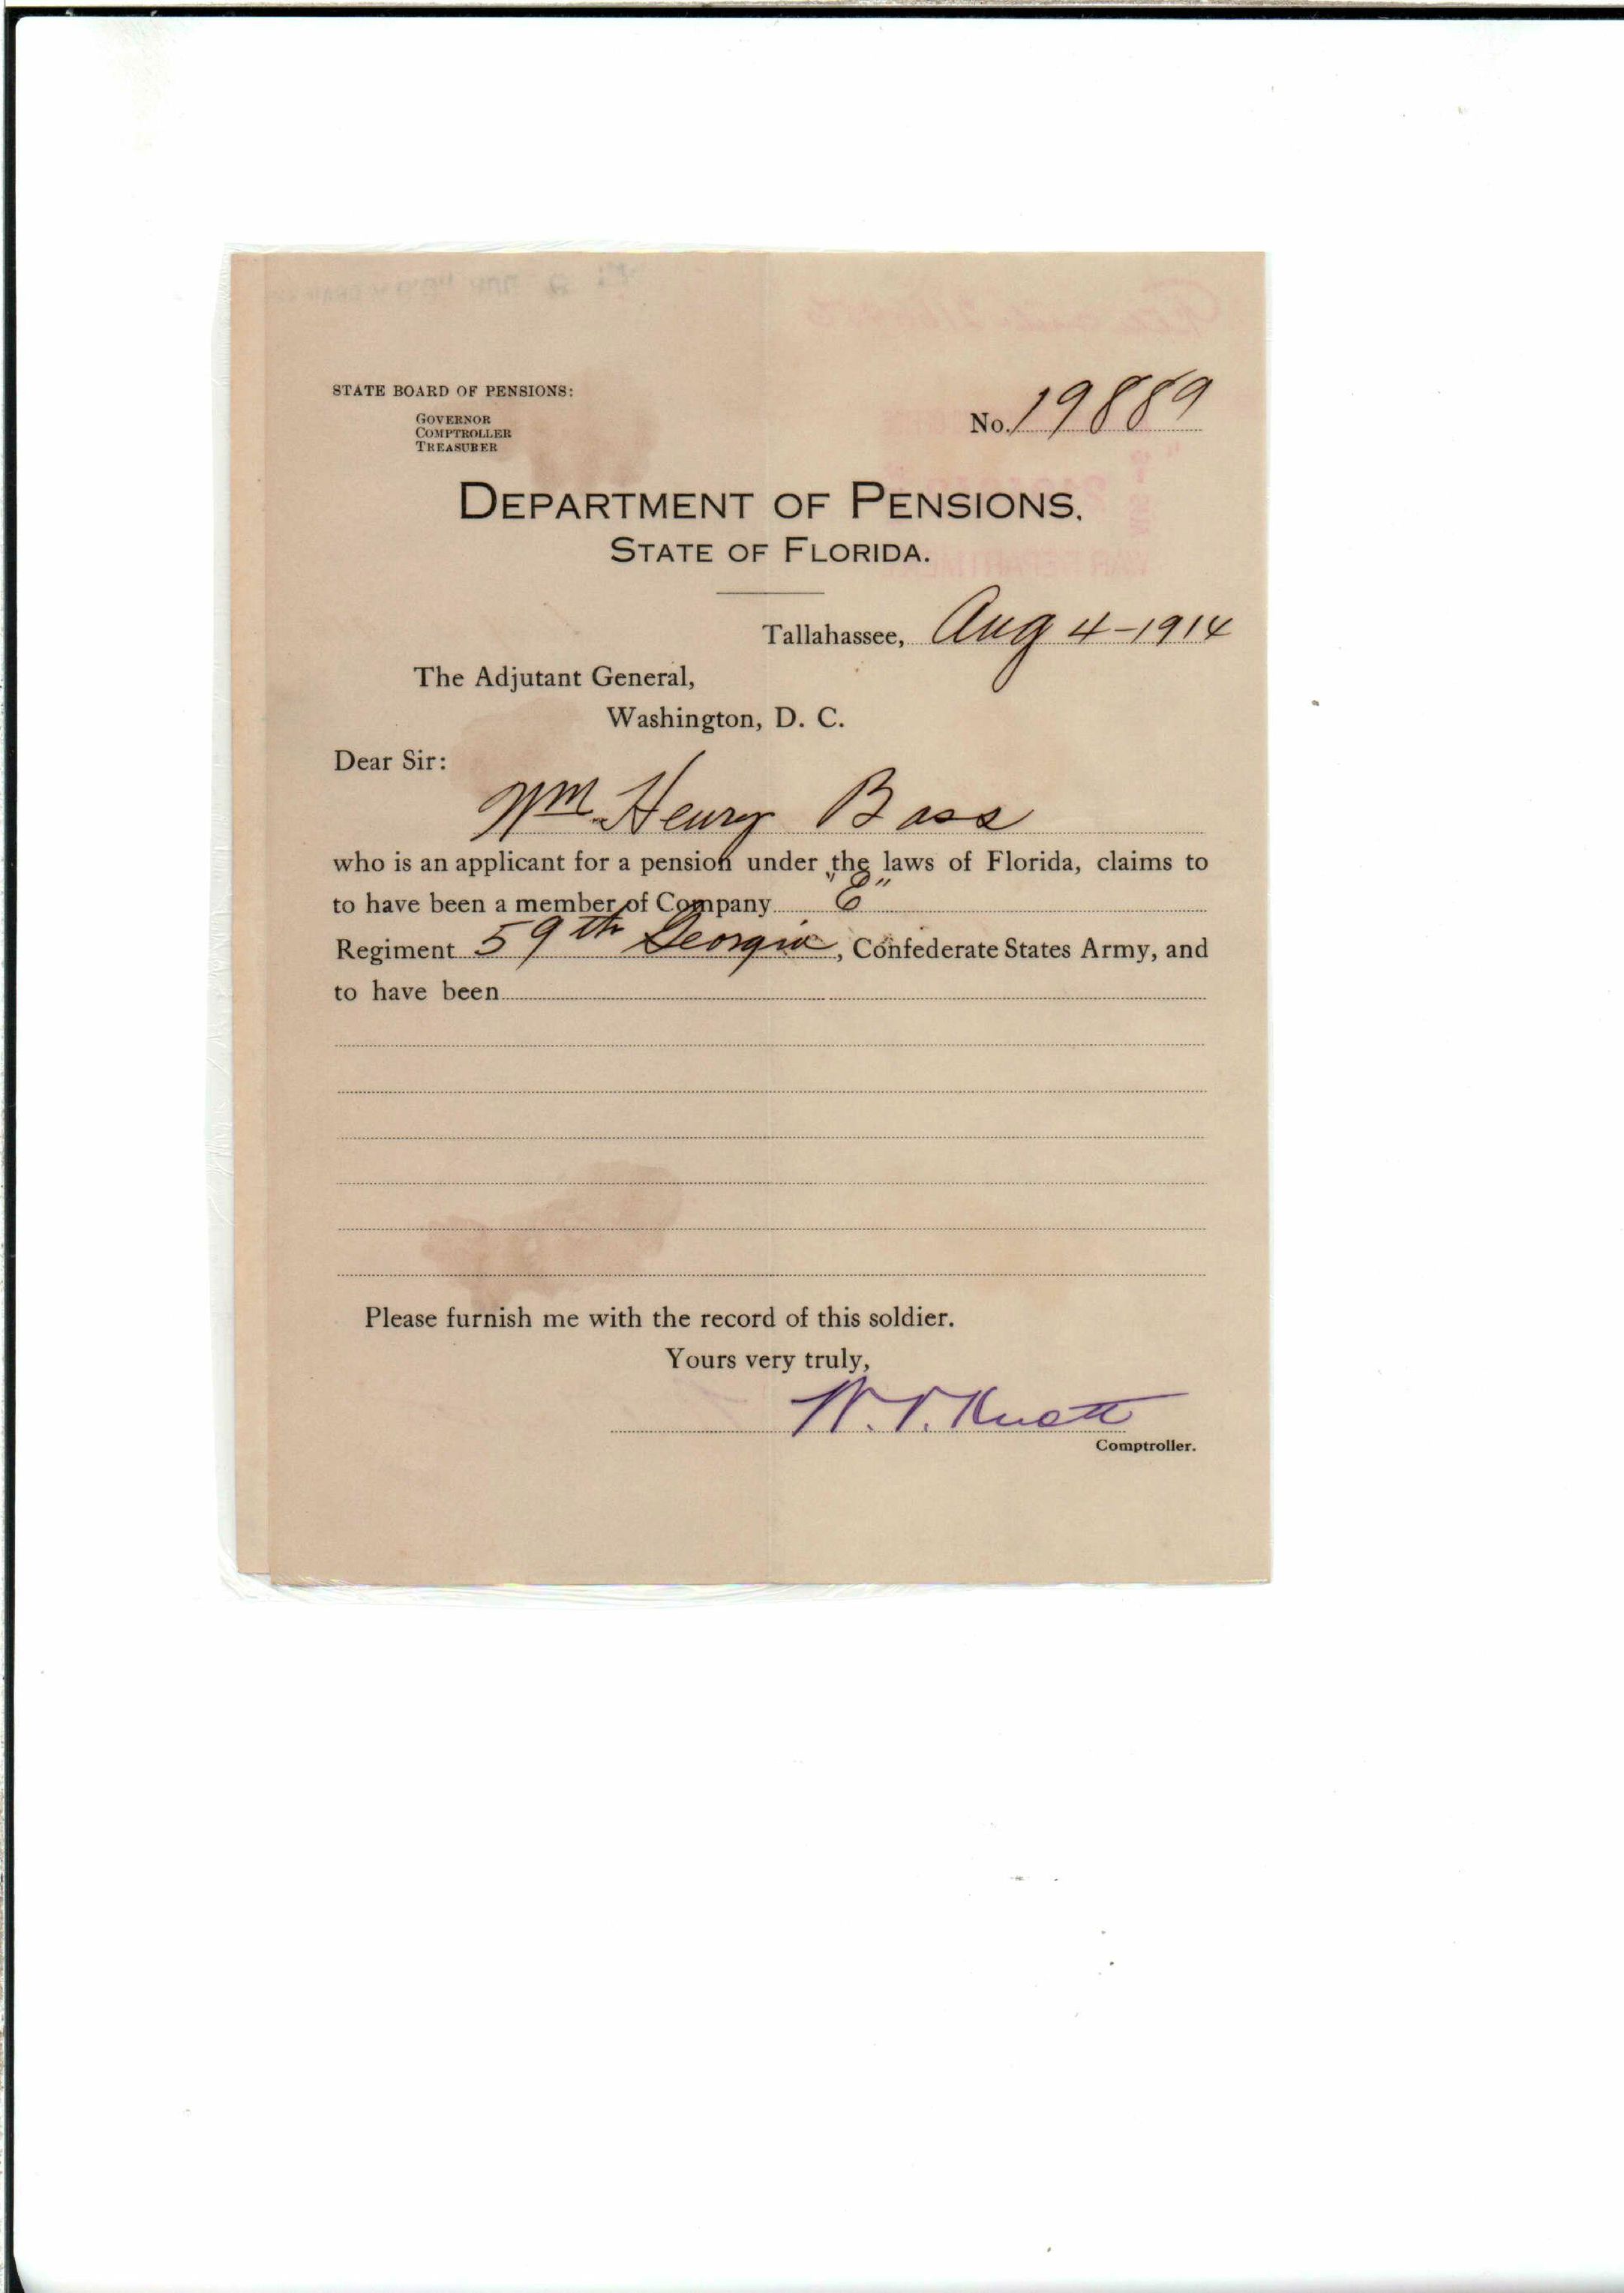 STATE BOARD OF PENSIONS:
GOVERNOR
COMPTROLLER
TREASURER
No. 19889
DEPARTMENT OF PENSIONS,
STATE OF FLORIDA.
Tallahassee, Aug 4-1914
The Adjutant General,
Washington, D. C.
Dear Sir:
Wm. Henry Bass
who is an applicant for a pension under the laws of Florida, claims to
to have been a member of Company "E"
Regiment 59th Georgia, Confederate States Army, and
to have been
Please furnish me with the record of this soldier.
Yours very truly,
W. V. Knott
Comptroller.
WAR DEPARTMENT